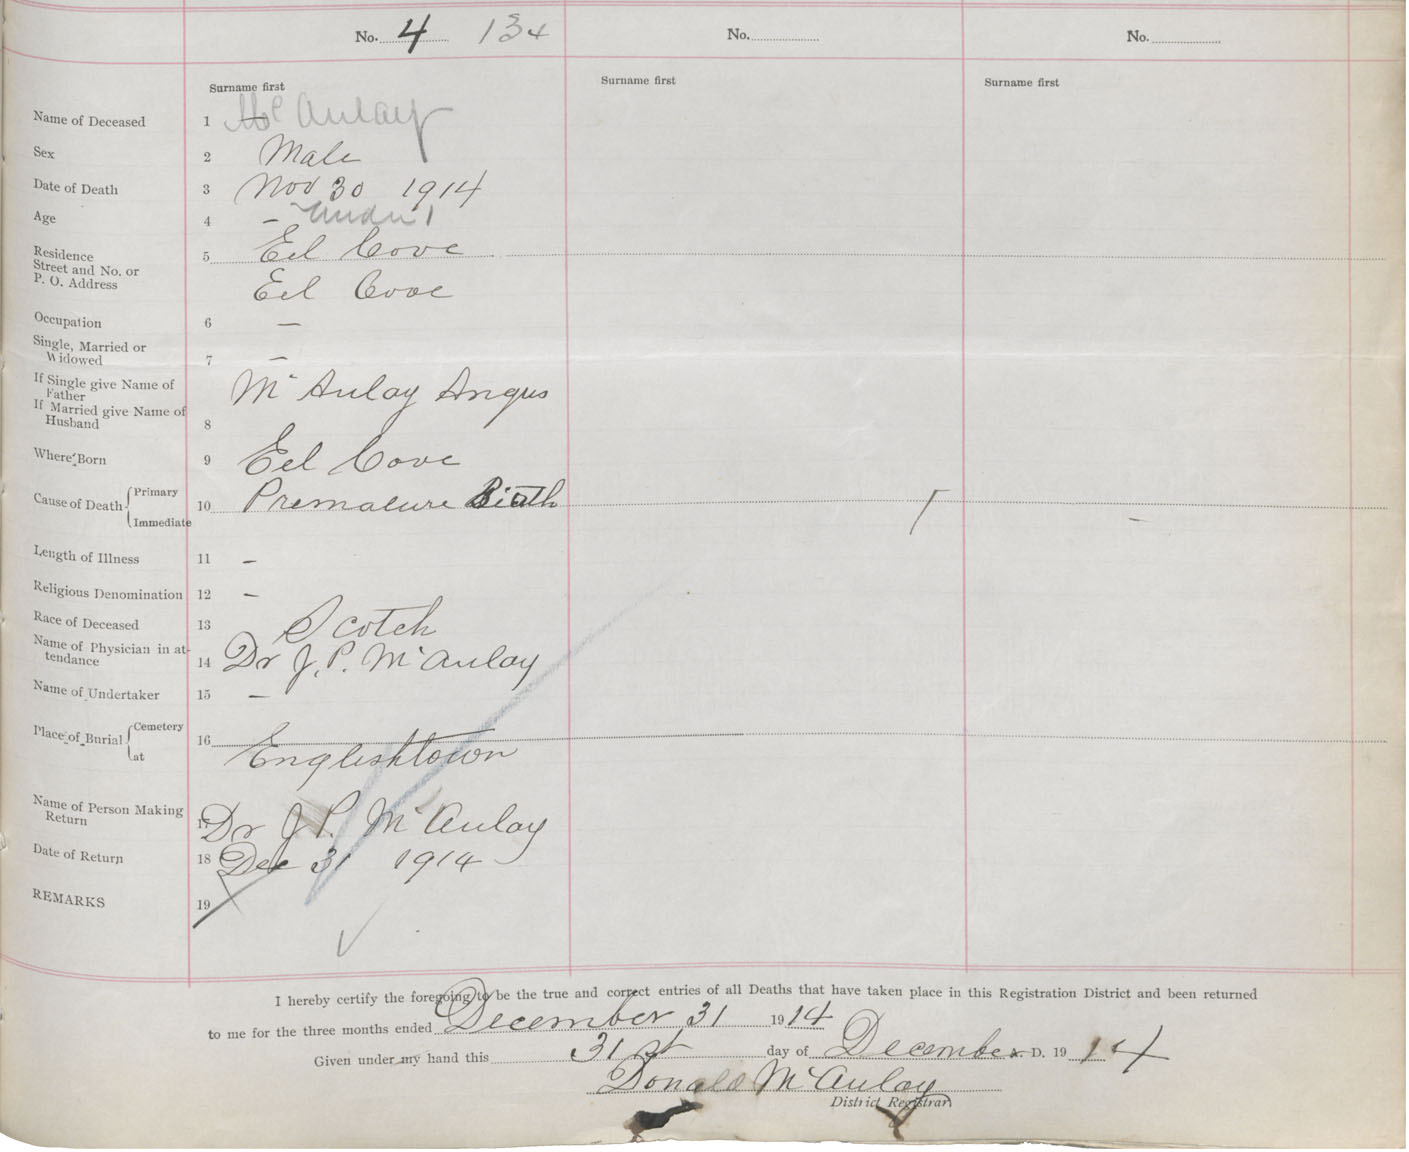 No. 4 134 No. No.
Surname first Surname first Surname first
Name of Deceased 1 — McAulay
Sex 2 Male
Date of Death 3 Nov 30 1914
Age 4 – under 1
Residence 5 Eel Cove
Street and No. or
P. O. Address Eel Cove
Occupation 6 —
Single, Married or
Widowed 7 —
If Single give Name of
Father McAulay Angus
If Married give Name of
Husband 8
Where Born 9 Eel Cove
Cause of Death { Primary
10 Premature Birth
Immediate
Length of Illness 11 –
Religious Denomination 12 –
Race of Deceased 13 Scotch
Name of Physician in at-
tendance 14 Dr J. P. McAulay
Name of Undertaker 15 —
Place of Burial { Cemetery
16
at Englishtown
Name of Person Making
Return 17 Dr J P. McAulay
Date of Return 18 Dec 31 1914
REMARKS 19
I hereby certify the foregoing to be the true and correct entries of all Deaths that have taken place in this Registration District and been returned
to me for the three months ended December 31 1914
Given under my hand this 31st day of December D. 1914
Donald McAulay
District Registrar